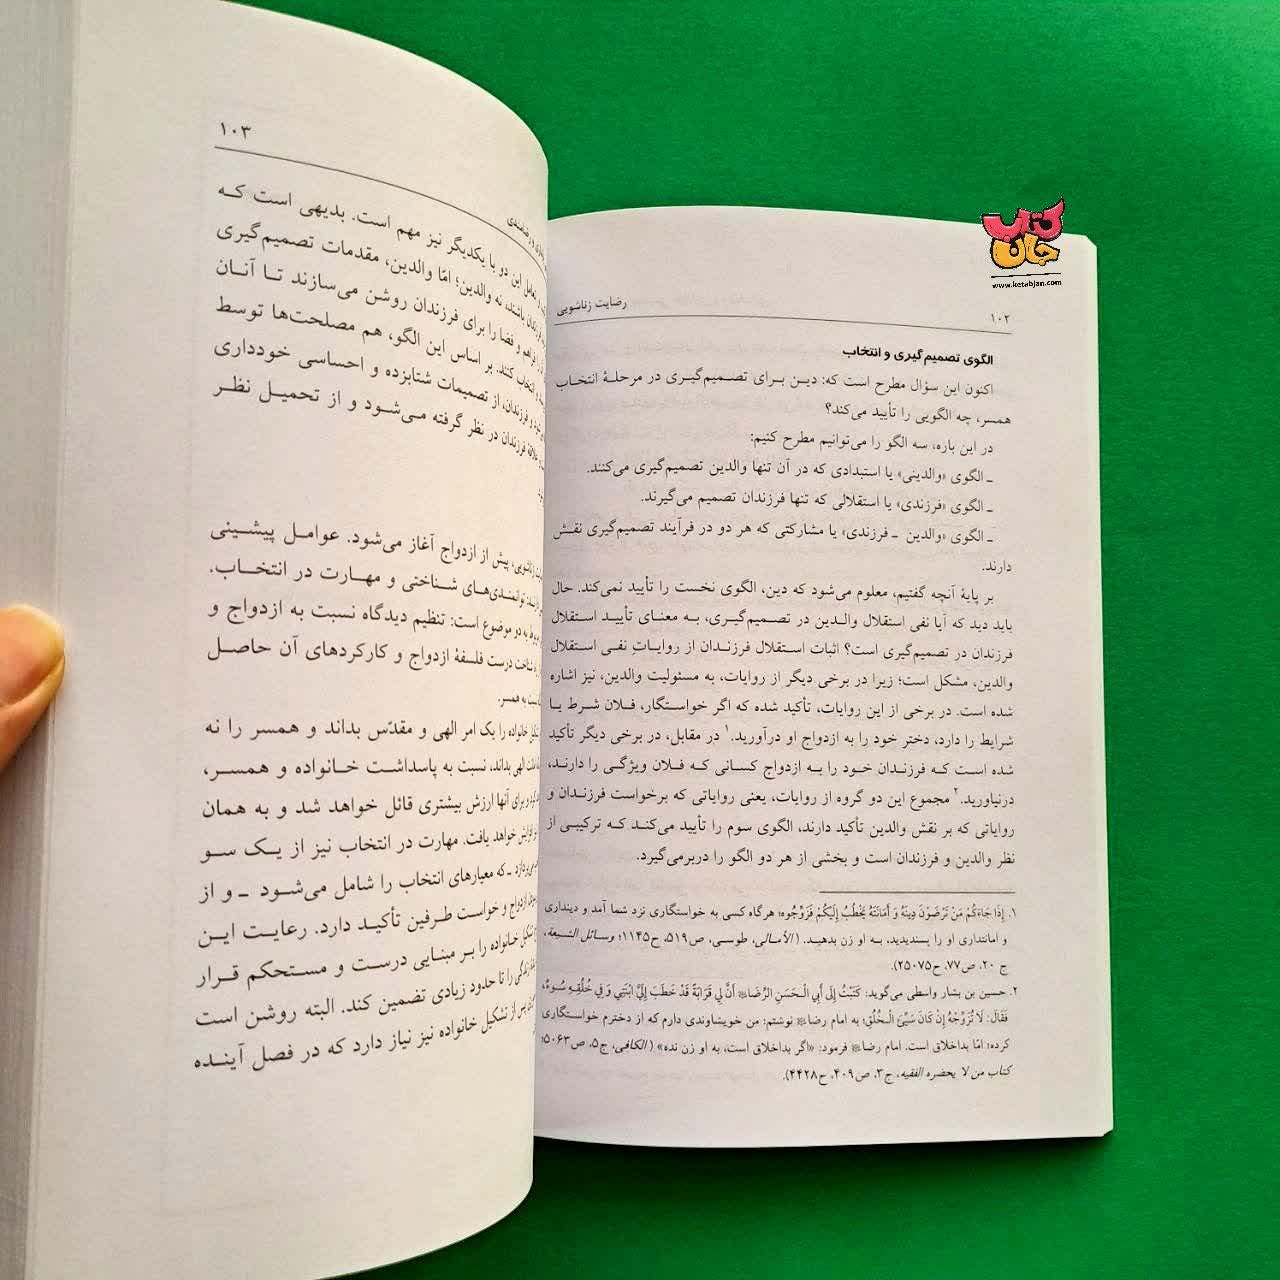 کتاب
جان
www.ketabjan.com
۱۰۲
رضایت زناشویی
الگوی تصمیم‌گیری و انتخاب
اکنون این سؤال مطرح است که: دین برای تصمیم‌گیری در مرحلهٔ انتخاب
همسر، چه الگویی را تأیید می‌کند؟
در این باره، سه الگو را می‌توانیم مطرح کنیم:
ـ الگوی «والدینی» یا استبدادی که در آن تنها والدین تصمیم‌گیری می‌کنند.
ـ الگوی «فرزندی» یا استقلالی که تنها فرزندان تصمیم می‌گیرند.
ـ الگوی «والدین ـ فرزندی» یا مشارکتی که هر دو در فرآیند تصمیم‌گیری نقش
دارند.
بر پایهٔ آنچه گفتیم، معلوم می‌شود که دین، الگوی نخست را تأیید نمی‌کند. حال
باید دید که آیا نفی استقلال والدین در تصمیم‌گیری، به معنای تأیید استقلال
فرزندان در تصمیم‌گیری است؟ اثبات استقلال فرزندان از روایاتِ نفی استقلال
والدین، مشکل است؛ زیرا در برخی دیگر از روایات، به مسئولیت والدین، نیز اشاره
شده است. در برخی از این روایات، تأکید شده که اگر خواستگار، فلان شرط یا
شرایط را دارد، دختر خود را به ازدواج او درآورید.۱ در مقابل، در برخی دیگر تأکید
شده است که فرزندان خود را به ازدواج کسانی که فلان ویژگی را دارند،
درنیاورید.۲ مجموع این دو گروه از روایات، یعنی روایاتی که برخواست فرزندان و
روایاتی که بر نقش والدین تأکید دارند، الگوی سوم را تأیید می‌کند که ترکیبی از
نظر والدین و فرزندان است و بخشی از هر دو الگو را دربرمی‌گیرد.
۱. إِذَا جَاءَكُمْ مَنْ تَرْضَوْنَ دِينَهُ وَ أَمَانَتَهُ يَخْطُبُ إِلَيْكُمْ فَزَوِّجُوهُ؛ هرگاه کسی به خواستگاری نزد شما آمد و دینداری
و امانتداری او را پسندیدید، به او زن بدهید. (الأمالی، طوسی، ص۵۱۹، ح۱۱۴۵؛ وسائل الشیعة،
ج ۲۰، ص۷۷، ح۲۵۰۷۵).
۲. حسین بن بشار واسطی می‌گوید: كَتَبْتُ إِلَى أَبِي الْحَسَنِ الرِّضَا أَنَّ لِي قَرَابَةً قَدْ خَطَبَ إِلَيَّ ابْنَتِي وَ فِي خُلُقِهِ سُوءٌ،
فَقَالَ: لَا تُزَوِّجْهُ إِنْ كَانَ سَيِّئَ الْخُلُقِ؛ به امام رضا نوشتم: من خویشاوندی دارم که از دخترم خواستگاری
کرده؛ امّا بداخلاق است. امام رضا فرمود: «اگر بداخلاق است، به او زن نده» (الکافی، ج۵، ص۵۰۶۳؛
کتاب من لا یحضره الفقیه، ج۳، ص۴۰۹، ح۴۴۲۸).
۱۰۳
تعامل این دو با یکدیگر نیز مهم است. بدیهی است که
فرزندان باشند، نه والدین؛ امّا والدین، مقدمات تصمیم‌گیری
فراهم و فضا را برای فرزندان روشن می‌سازند تا آنان
انتخاب کنند. بر اساس این الگو، هم مصلحت‌ها توسط
و فرزندان، از تصمیمات شتابزده و احساسی خودداری
علاقهٔ فرزندان در نظر گرفته می‌شود و از تحمیل نظر
زناشویی، پیش از ازدواج آغاز می‌شود. عوامل پیشینی
توانمندی‌های شناختی و مهارت در انتخاب.
به دو موضوع است: تنظیم دیدگاه نسبت به ازدواج و
شناخت درست فلسفهٔ ازدواج و کارکردهای آن حاصل
نسبت به همسر.
خانواده را یک امر الهی و مقدّس بداند و همسر را نه
الهی بداند، نسبت به پاسداشت خانواده و همسر،
و برای آنها ارزش بیشتری قائل خواهد شد و به همان
افزایش خواهد یافت. مهارت در انتخاب نیز از یک سو
ـ که معیارهای انتخاب را شامل می‌شود ـ و از
ازدواج و خواست طرفین تأکید دارد. رعایت این
تشکیل خانواده را بر مبنایی درست و مستحکم قرار
زندگی را تا حدود زیادی تضمین کند. البته روشن است
پس از تشکیل خانواده نیز نیاز دارد که در فصل آینده